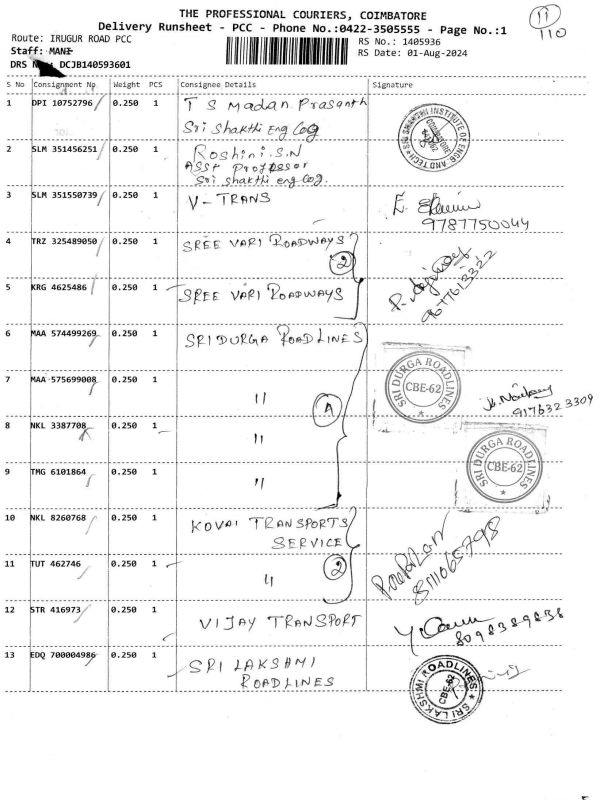 THE PROFESSIONAL COURIERS, COIMBATORE
Delivery Runsheet - PCC - Phone No.:0422-3505555 - Page No.:1
11
110
Route: IRUGUR ROAD PCC
RS No.: 1405936
Staff: MANI
RS Date: 01-Aug-2024
DRS No: DCJB140593601
S No Consignment No Weight PCS Consignee Details Signature
1 DPI 10752796 0.250 1 T S Madan Prasanth
Sri Shakthi Eng Cog
SRI SHAKTHI INSTITUTE OF ENGG AND TECH COIMBATORE
2 SLM 351456251 0.250 1 Roshini.S.N
Asst Professor
Sri shakthi eng cog.
3 SLM 351550739 0.250 1 V-TRANS
9787750044
4 TRZ 325489050 0.250 1 SREE VARI ROADWAYS
2
9677613322
5 KRG 4625486 0.250 1 SREE VARI ROADWAYS
6 MAA 574499269 0.250 1 SRI DURGA ROAD LINES
SRI DURGA ROADLINES CBE-62
7 MAA 575699008 0.250 1 "
9176323309
8 NKL 3387708 0.250 1 "
SRI DURGA ROADLINES CBE-62
9 TMG 6101864 0.250 1 "
10 NKL 8260768 0.250 1 KOVAI TRANSPORTS
SERVICE
11 TUT 462746 0.250 1 "
2
8111065798
12 STR 416973 0.250 1 VIJAY TRANSPORT
8098389838
13 EDQ 700004986 0.250 1 SRI LAKSHMI
ROADLINES
SRI LAKSHMI ROADLINES CBE-62